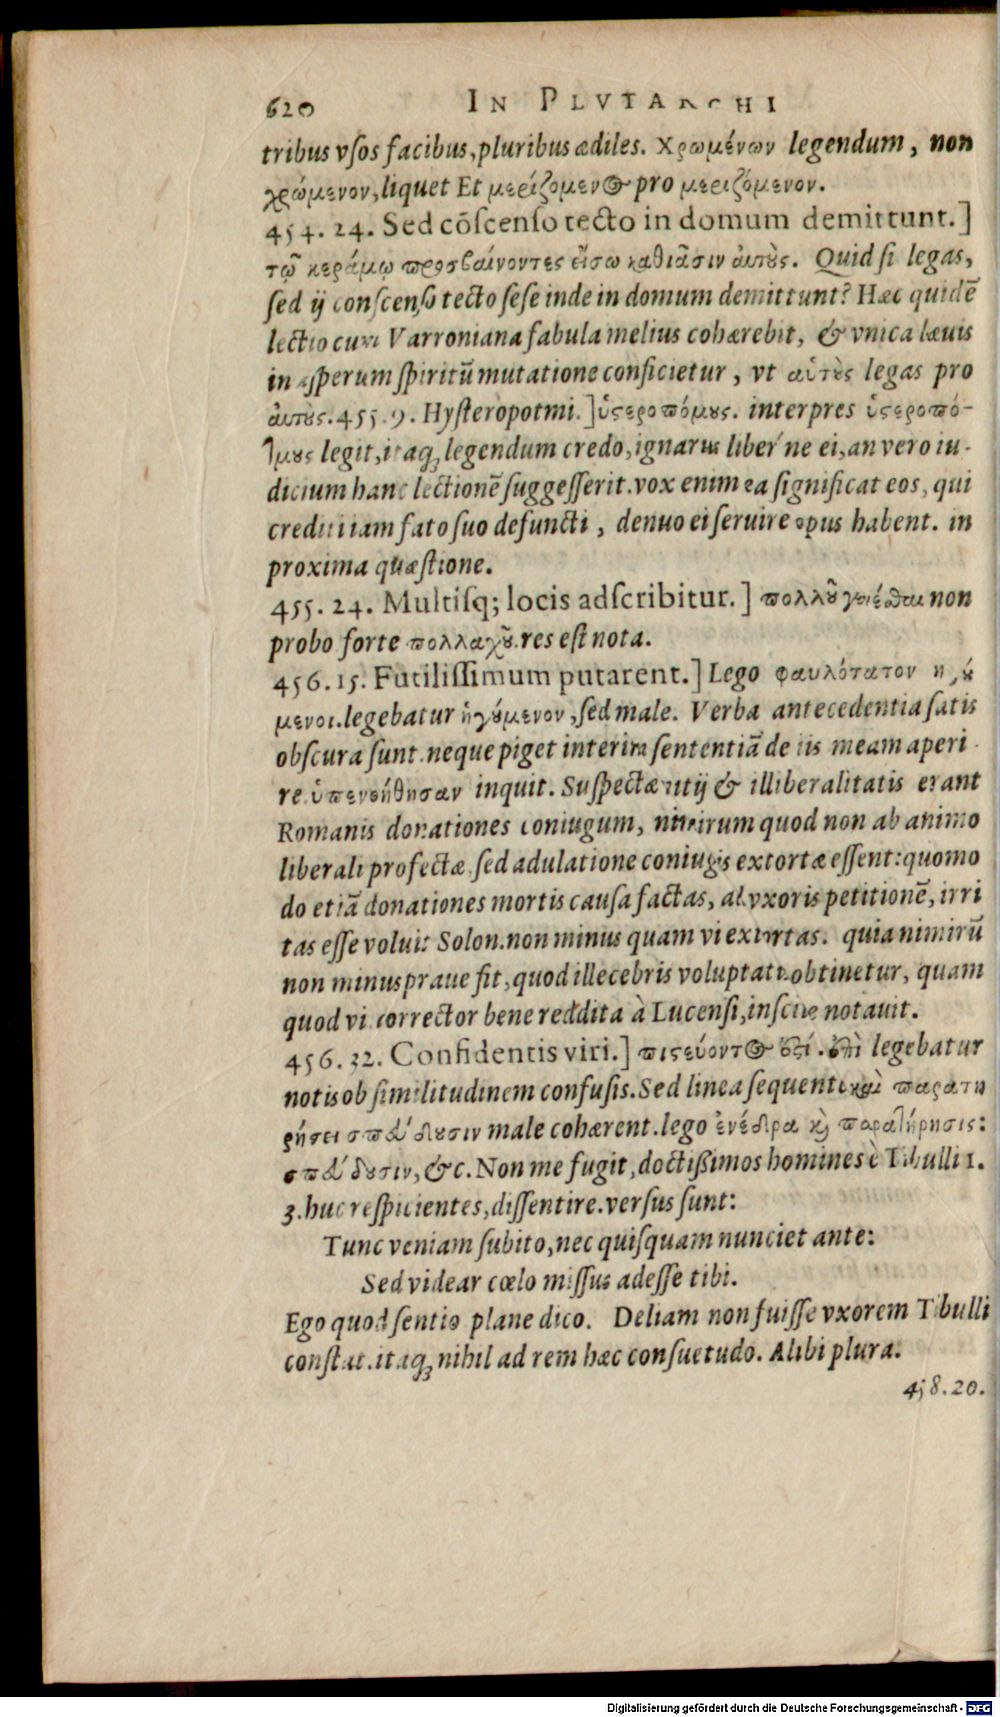 620 IN PLVTARCHI
tribus vſos facibus, pluribus ædiles. Χρωμένων legendum, non
χρώμενον, liquet Et μερίζομεν pro μεριζόμενον.
454. 24. Sed cōſcenſo tecto in domum demittunt.]
τῷ κεράμῳ προσβαίνοντες εἴσω καθιᾶσιν ἀυτούς. Quid ſi legas,
ſed ij conſcenſo tecto ſeſe inde in domum demittunt? Hæc quidē
lectio cum Varroniana fabula melius cohærebit, & vnica læuis
in aſperum ſpiritū mutatione conficietur, vt αὑτοὺς legas pro
ἀυτους. 455. 9. Hyſteropotmi.] ὑςεροπόμους. interpres ὑςεροπό-
τμους legit, itaq; legendum credo, ignarus liber ne ei, an vero iu-
dicium hanc lectionē ſuggeſſerit. vox enim ea ſignificat eos, qui
credit iiam fato ſuo defuncti, denuo ei ſeruire opus habent. in
proxima quæſtione.
455. 24. Multiſq; locis adſcribitur.] πολλοῦ non
probo forte πολλαχοῦ. res eſt nota.
456. 15. Futiliſſimum putarent.] Lego φαυλότατον ἡγού
μενοι. legebatur ἡγούμενον, ſed male. Verba antecedentia ſatis
obſcura ſunt. neque piget interim ſententiā de iis meam aperi-
re. ὑπενοήθησαν inquit. Suſpectæ vitij & illiberalitatis erant
Romanis donationes coniugum, nimirum quod non ab animo
liberali profectæ, ſed adulatione coniugis extortæ eſſent: quomo
do etiā donationes mortis cauſa factas, ad vxoris petitionē, irri
tas eſſe voluit Solon. non minus quam vi extortas. quia nimirū
non minus praue fit, quod illecebris voluptatis obtinetur, quam
quod vi. corrector bene reddita à Lucenſi, inſcite notauit.
456. 32. Confidentis viri.] πιςεύοντ ἐςί. ἐπὶ legebatur
notis ob ſimilitudinem confuſis. Sed linea ſequenti καὶ παρατη
ρήσει σπεύδουσιν male cohærent. lego ἐνέδρα κὶ παρατήρησις:
σπεύδουσιν, &c. Non me fugit, doctißimos homines è Tibulli 1.
3. huc reſpicientes, diſſentire. verſus ſunt:
Tunc veniam ſubito, nec quiſquam nunciet ante:
Sed videar cœlo miſſus adeſſe tibi.
Ego quod ſentio plane dico. Deliam non fuiſſe vxorem Tibulli
conſtat. itaq; nihil ad rem hæc conſuetudo. Alibi plura.
458. 20.
Digitalisierung gefördert durch die Deutsche Forschungsgemeinschaft - DFG